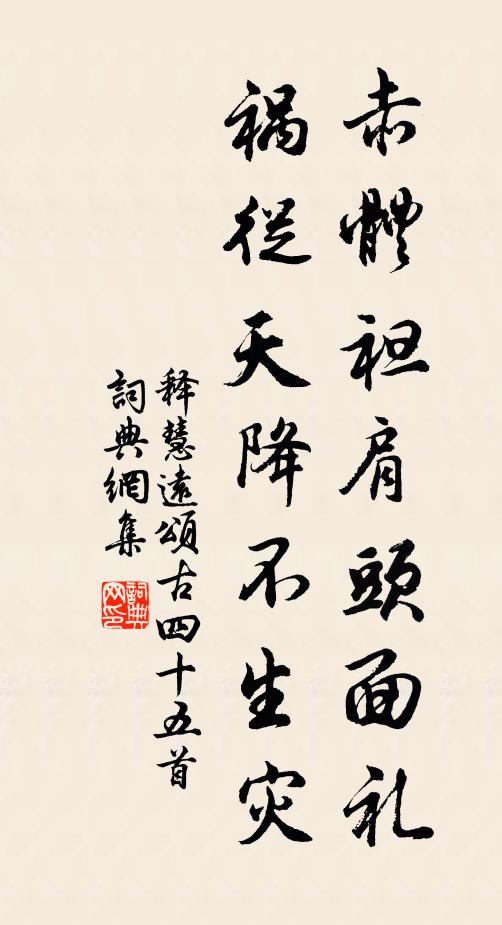 赤體袒肩頭面礼
祸從天降不生灾
释慧遠頌古四十五首
詞典網集
詞典网印